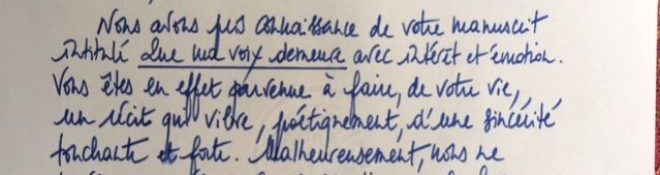 Nous avons pris connaissance de votre manuscrit
intitulé Que ma voix demeure avec intérêt et émotion.
Vous êtes en effet parvenue à faire, de votre vie,
un récit qui vibre, poétiquement, d'une sincérité
touchante et forte. Malheureusement, nous ne